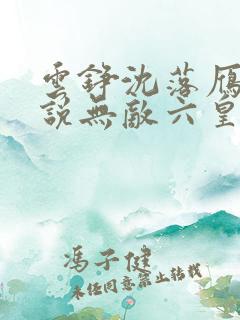 雲錚沈落雁
說無敵六皇
馮子健
未经同意禁止转载